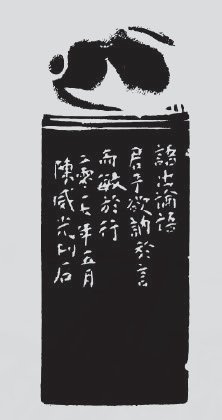 語出論語
君子欲訥於言
而敏於行
二零一七年五月
陳威光刻石